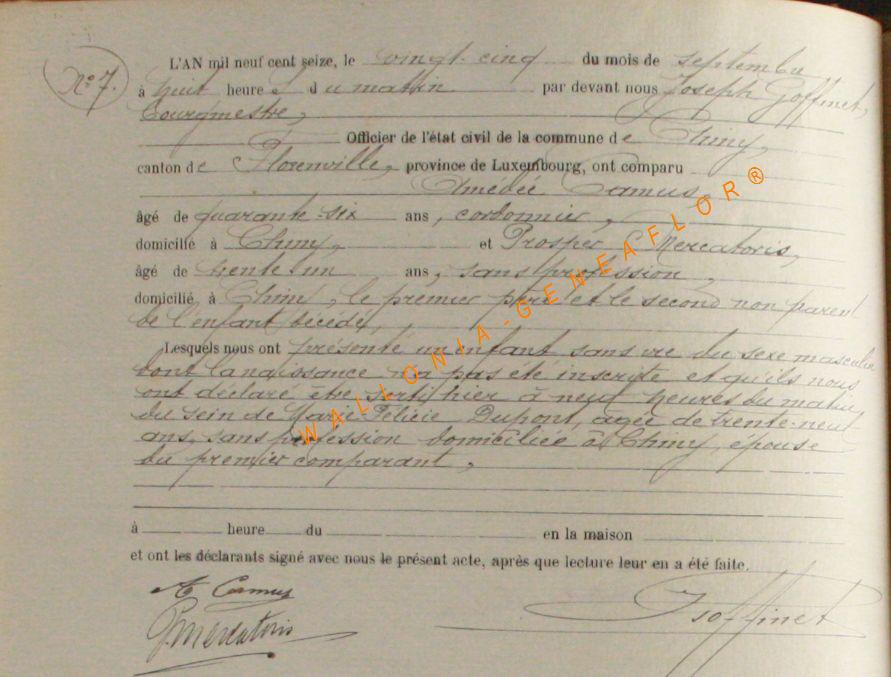 N° 7.
L'AN mil neuf cent seize, le vingt-cinq du mois de septembre
à huit heures du matin par devant nous Joseph Goffinet,
bourgmestre,
Officier de l'état civil de la commune de Chiny,
canton de Florenville, province de Luxembourg, ont comparu
Amédée Camus,
âgé de quarante-six ans, cordonnier,
domicilié à Chiny, et Prosper Mercatoris,
âgé de trente un ans, sans profession,
domicilié à Chiny, le premier père et le second non parent
de l'enfant décédé,
Lesquels nous ont présenté un enfant sans vie du sexe masculin
dont la naissance n'a pas été inscrite et qu'ils nous
ont déclaré être sorti hier à neuf heures du matin
du sein de Marie-Félicie Dupont, agée de trente-neuf
ans, sans profession domiciliée à Chiny, épouse
du premier comparant,
à heure du en la maison
et ont les déclarants signé avec nous le présent acte, après que lecture leur en a été faite.
A Camus
P Mercatoris
J Goffinet
WALLONIA-GENEAFLOR®